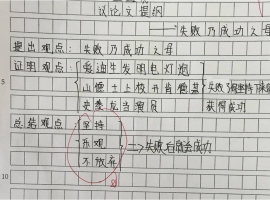 议论文提纲
——失败乃成功之母
提出观点：失败乃成功之母
证明观点：爱迪生发明电灯泡
山德士上校开肯德基
失败了但坚持下来
史泰龙当演员
获得成功
总结观点：坚持
乐观
不放弃
=>失败后就会成功
5
10